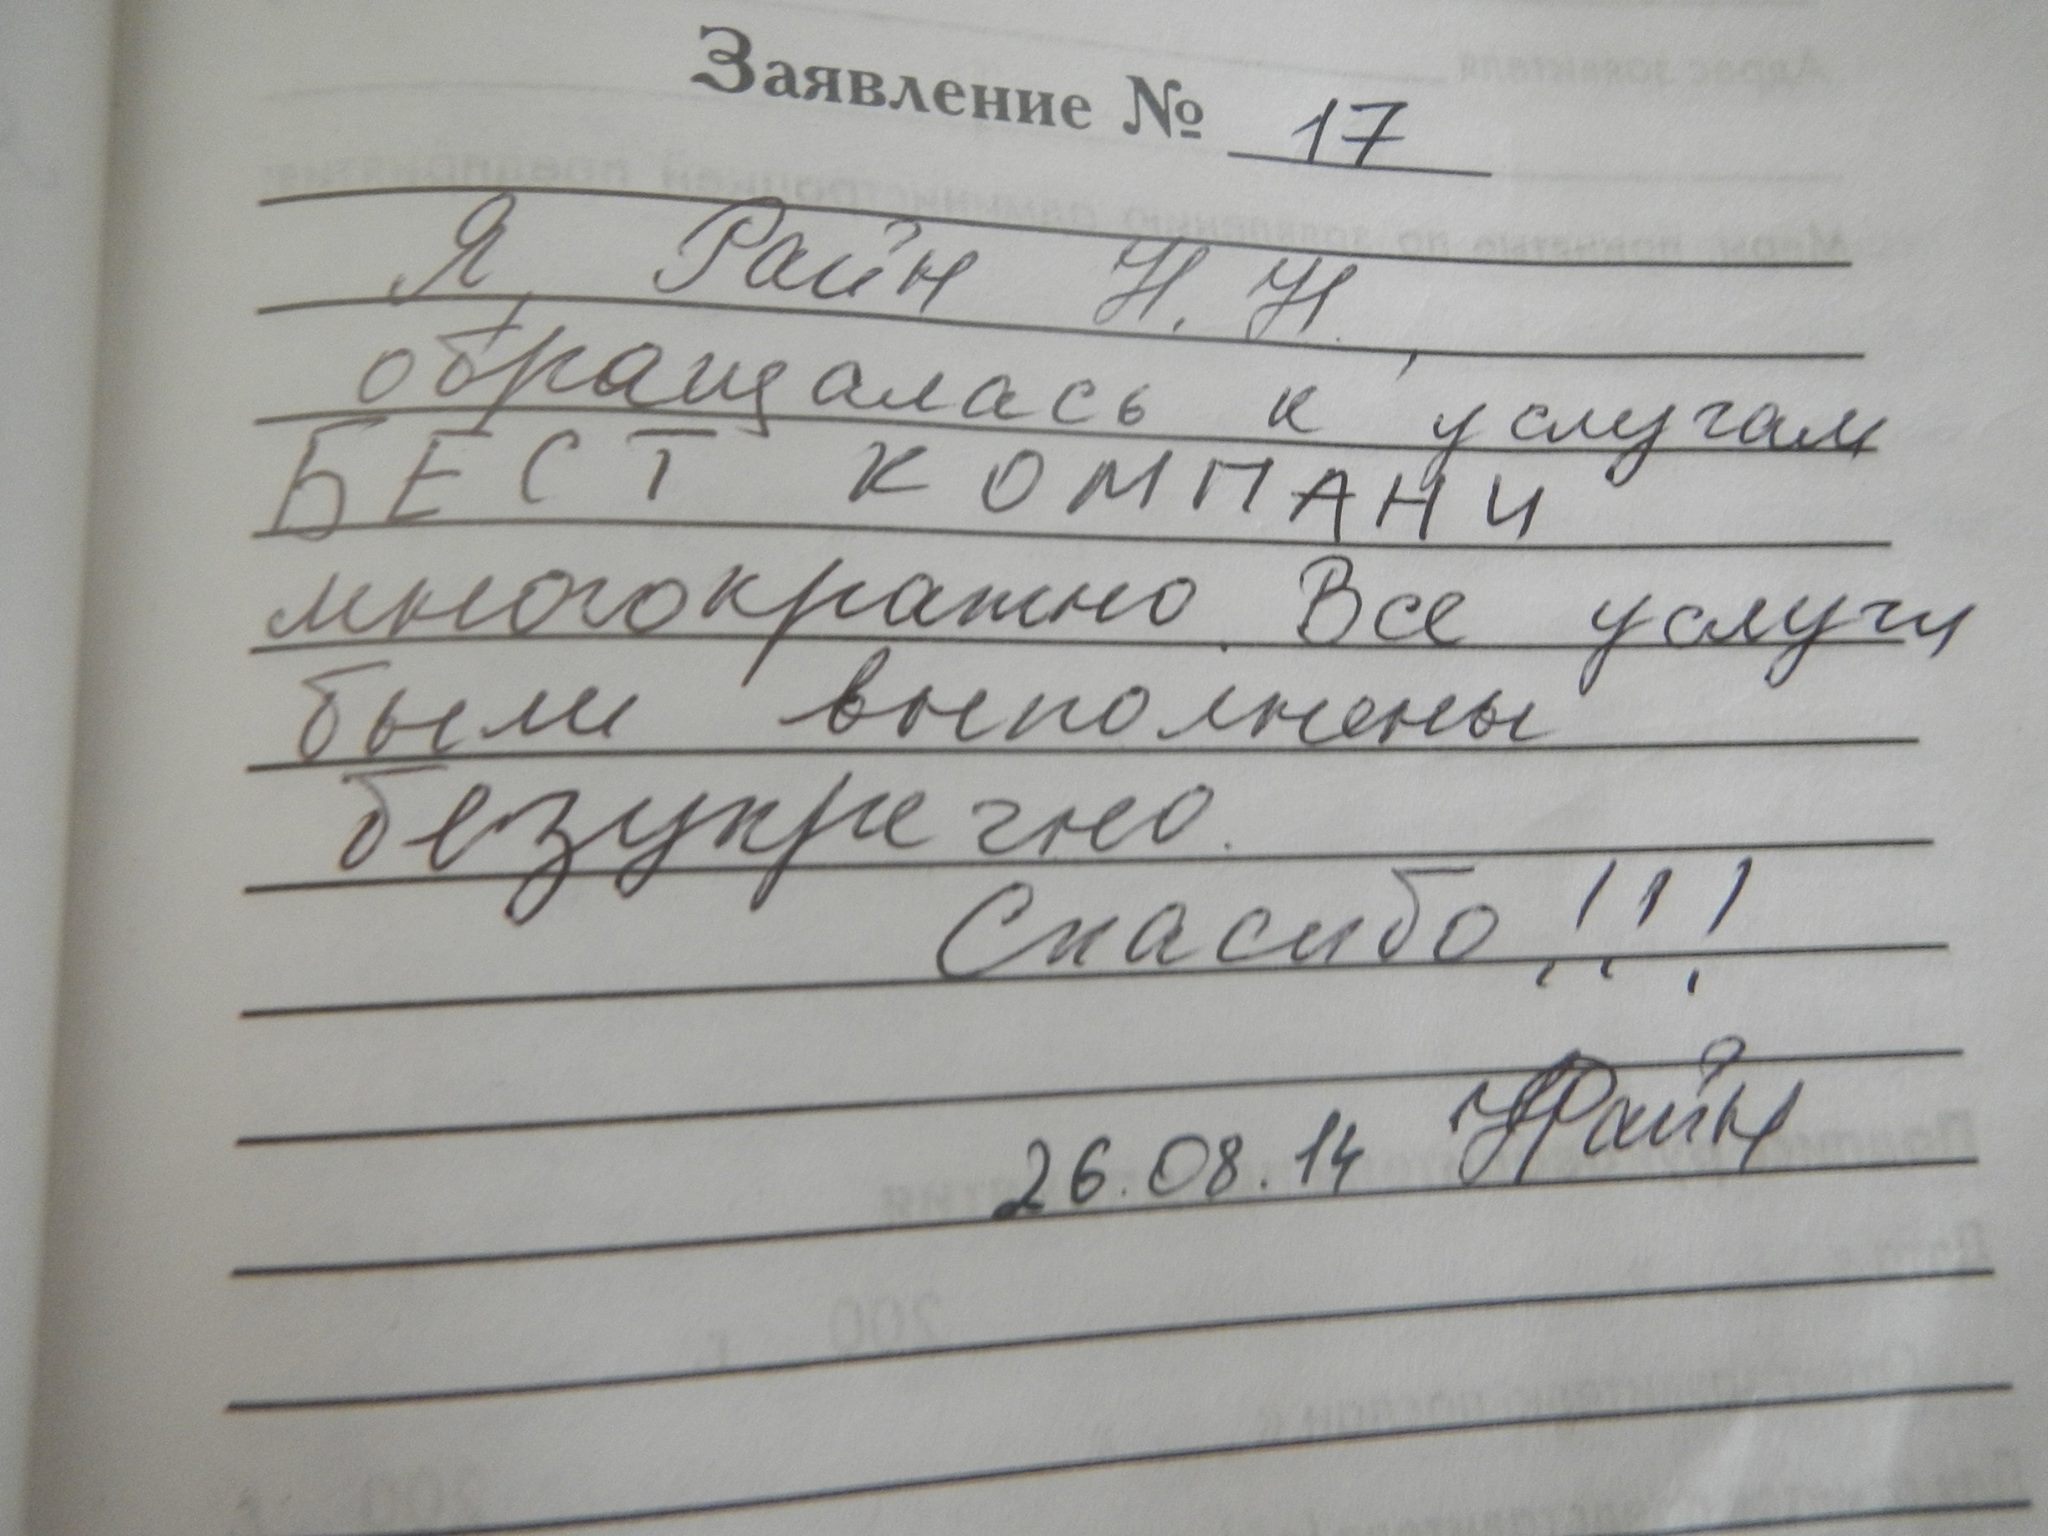 Заявление № 17
Я, Райн Н. Н.,
обращалась к услугам
БЕСТ КОМПАНИ
многократно. Все услуги
были выполнены
безукречно.
Спасибо!!!
26.08.14 НРайн